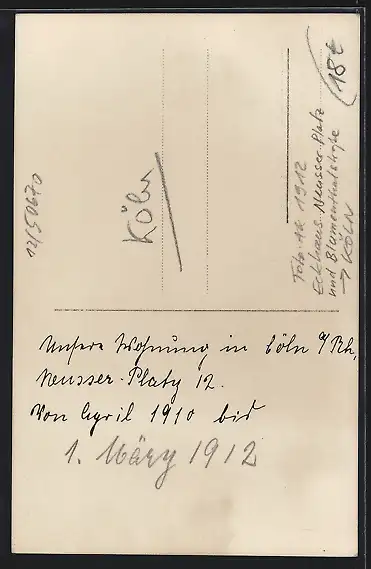 Unsere Wohnung in Cöln a/Rh,
Neusser-Platz 12.
Von April 1910 bis
1. März 1912
Köln
12/50670
Foto ca 1912
Eckhaus Neusser-Platz
und Blumenthalstraße
→ KÖLN
18€